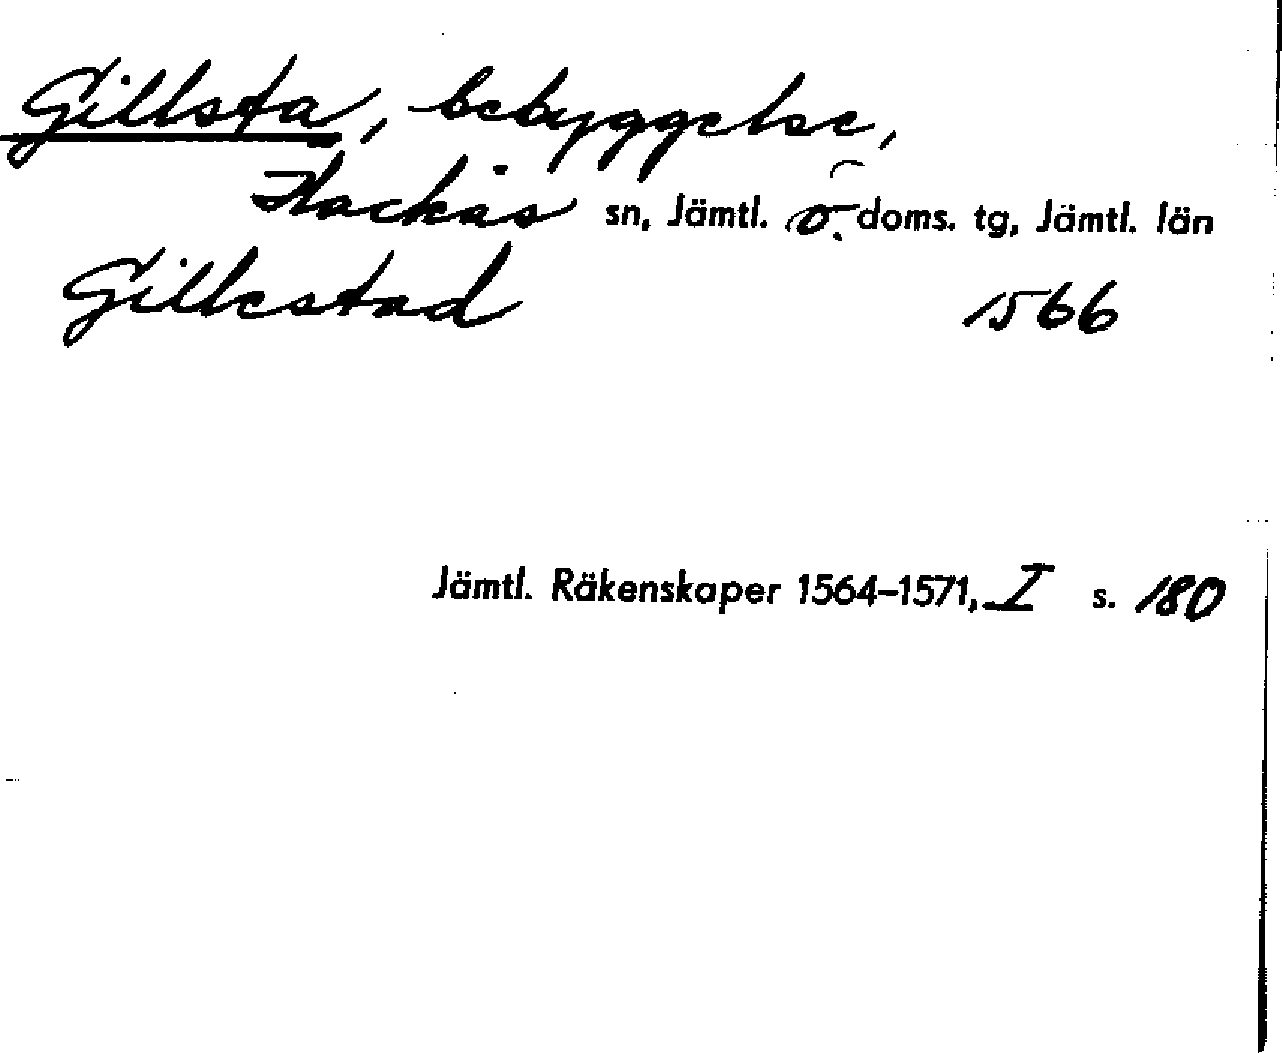 Gillsta, bebyggelse,
Hackås sn, Jämtl. ö. doms. tg, Jämtl. län
Gillestad 1566
Jämtl. Räkenskaper 1564-1571, I s. 180